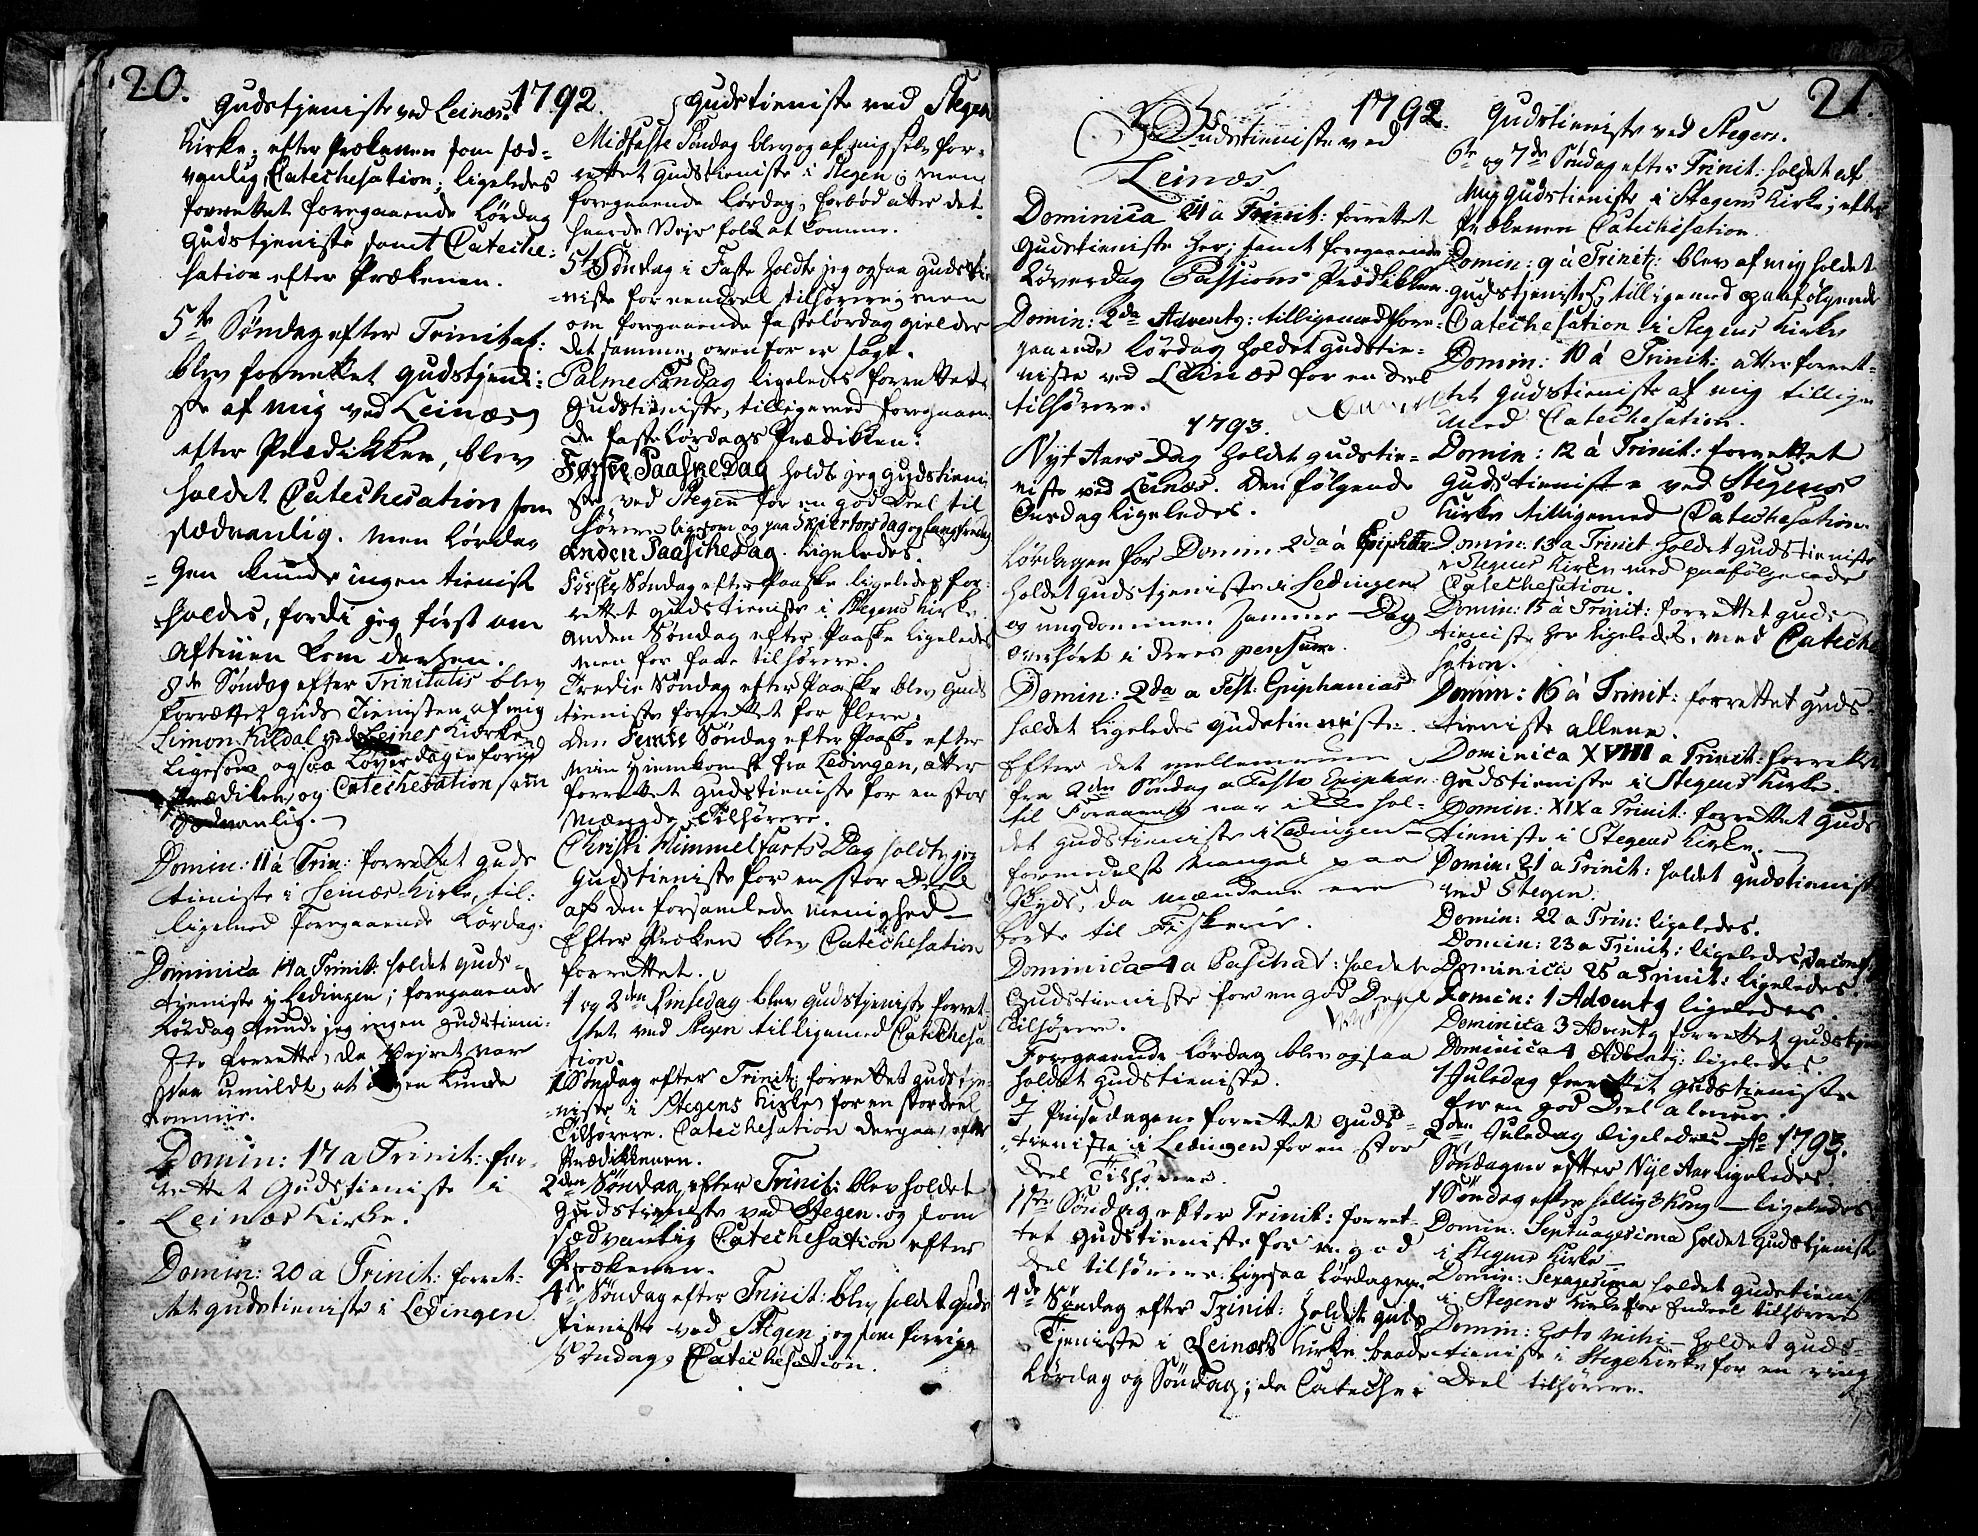 20.
1792.
Gudstjeniste ved Leines
Kirke; efter Prækenen som sæd-
vanlig Catechesation; ligeledes
forrettet foregaaende Lørdag
Gudstjeniste samt Cateche-
sation efter Prækenen.
5te Søndag efter Trinitat:
blev forrettet Gudstjeni-
ste af mig ved Leines
efter Prædikken, blev
holdet Catechesation som
sædvanlig. Men Lørda-
gen kunde ingen tieniste
holdes, fordi jeg først om
Aftinen kom derhen.
8de Søndag efter Trinitatis blev
forrættet Guds Tienisten af mig
Simon Kildal ved Leines Kirke
Ligesom ogsaa Løverdagen forud
Prædiken og Catechesation som
Sædvanlig.
Domin: 11 a Trin: forrettet Guds
tieniste i Leines Kirke, til-
ligemed foregaaende Lørdag.
Dominica 14 a Trinit: holdet Guds-
tjeniste i Ledingen; foregaaende
Lørdag kunde jeg ingen Gudstieni-
ste forrette, da Vejret var
saa umildt, at ingen kunde
komme.
Domin: 17 a Trinit: for-
rettet Gudstieniste i
Leines Kirke.
Domin: 20 a Trinit: forret-
tet Gudstieniste i Ledingen
Gudstieniste ved Stegen
Midfaste Søndag blev og af mig selv for-
rettet Gudstieniste i Stegen; men
foregaaende Lørdag, forbød atter det
haarde Vejr folk at komme.
5te Søndag i Faste holdte jeg ogsaa Gudstie-
niste for en deel tilhørere; men
om foregaaende fastelørdag gielder
det samme ovenfor er sagt.
Palme Søndag ligeledes forrettet
Gudstieniste, tilligemed foregaaen-
de fastelørdags Prædikken.
Første Paaske Dag holdt jeg Gudstieni
ste ved Stegen for en god Deel til
hørere ligesom og paa Skiertorsdag og Langfredag
Anden Paaschedag. Ligeledes.
Første Søndag efter Paaske ligeledes for-
rettet Gudstieniste i Stegens Kirke
Anden Søndag efter Paaske ligeledes
men for faae tilhørere.
Tredie Søndag efter Paaske blev Guds
tieniste forrettet for flere.
Den Femte Søndag efter Paaske efter
min Hiemkomst fra Ledingen, atter
forrettet Gudstieniste for en stor
Mængde Tilhørere.
Christi Himmelfarts Dag holdte jeg
Gudstieniste for en stor Deel
af den forsamlede Menighed
Efter Præken blev Catechesation
forrettet.
1 og 2den Pinsedag blev Gudstjeniste forret-
tet ved Stegen tilligemed Catechesa
tion.
1 Søndag efter Trinit: forrettet Gudstje-
niste i Stegens Kirke for en stor deel
Tilhørere. Catechesation dergaa, efter
Prædikkenen.
2den Søndag efter Trinit: blev holdet
Gudstieneste ved Stegen og som
sædvanlig Catechesation efter
Prækenen.
4de Søndag efter Trinit: blev holdet Guds
tieniste ved Stegen, og som forrige
Søndag, Catechesation.
21.
1792.
Gudstieniste ved
Leines
Dominica 24 a Trinit: forrettet
Gudstieniste her; samt foregaaende
Løverdag Passions Prædikken.
Domin: 2da Advents: tilligemed fore-
gaaende Lørdag holdet Gudstie-
niste ved Leines for en deel
tilhørere.
1793.
Nyt Aars Dag holdet Gudstie-
niste ved Leines. Den følgende
Onsdag ligeledes.
Lørdagen for Domin. 2da a Epiphan
holdet Gudstjeniste i Ledingen
og ungdommen samme Dag
overhørt i deres pensum.
Domin: 2da a Fest: Epiphanias
holdet ligeledes Gudstieniste.
Efter det mellemrum
fra 2den Søndag a Festo Epiphan:
til Foraaret var ikke hol-
det Gudstieniste i Ledingen
formedelst Mangel paa
Skyds, da Mændene ere
borte til Fiskerie.
Dominica 4 a Paschat: holdet
Gudstieniste for en god Deel
Tilhørere.
Foregaaende Lørdag blev ogsaa
holdet Gudstieniste.
I Pinsedagene forrettet Guds-
tieniste i Ledingen for en stor
Deel Tilhørere.
1ste Søndag efter Trinit: forret-
tet Gudstieniste for en god
Deel tilhørere: ligesaa Lørdagen.
4de Søndag efter Trinit: holdet Guds
Tjeniste i Leines Kirke baade
Lørdag og Søndag; da Cateche-
Gudstieniste ved Stegen.
6te og 7de Søndag efter Trinit: holdet af
mig Gudstieniste i Stegens Kirke; efter
Prækenen Catechisation.
Domin: 9 a Trinit: blev af mig holdet
Gudstjeniste tilligemed paafølgende
Catechesation i Stegens Kirke
Domin: 10 a Trinit: atter forret-
tet Gudstieniste af mig tillige
med Catechesation.
Domin: 12 a Trinit: forrettet
Gudstieniste ved Stegens
Kirke tilligemed Catechesation.
Domin: 13 a Trinit holdet Gudstieniste
i Stegens Kirke med paafølgende
Catechesation.
Domin: 15 a Trinit: forrettet Guds
tieniste her ligeledes, med Cateche
sation.
Domin: 16 a Trinit: forrettet Guds-
tieniste allene.
Dominica XVIII a Trinit: forrettet
Gudstieniste i Stegens Kirke.
Domin: XIX a Trinit: forrettet Guds
tieniste i Stegens Kirke.
Domin: 21 a Trinit: holdet Gudstieniste
ved Stegen.
Domin: 22 a Trin: ligeledes.
Domin: 23 a Trinit: ligeledes,
Dominica 25 a Trinit: ligeledes.
Domin: 1 Advents ligeledes.
Dominica 3 Advents forrettet Gudstjen
Dominica 4 Advents: ligeledes.
1 Juledag forrettet Gudstieniste
for en god Deel Almue.
2den Juledag ligeledes Ao 1793.
Søndagen efter Nyt Aar ligeledes.
1 Søndag efter hellig 3 Kong — ligeledes
Domin: Septuagesima holdet Gudstjeniste
i Stegens Kirke
Domin: Sexagesima holdet Gudstieniste
i Stegens Kirke for Endeel tilhørere
Domin: Esto mihi holdet Guds-
tieniste i Stegens Kirke for en ring
Deel tilhørere.